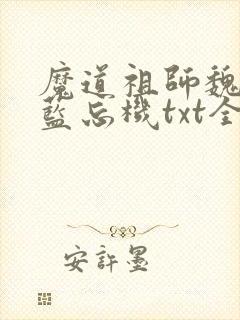 魔道祖師魏
藍忘機txt全
安許墨